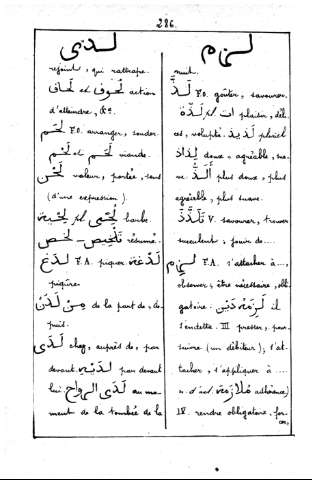 286.
لدى
rejoint, qui rattrape.
لحاق et لحوق action
d'atteindre, &c.
لحم F.O. arranger, souder.
لحم et لحم viande.
لحن valeur, portée, sens
(d'une expression).
لحية pl لحى barbe.
تلخيص – لخص résumé.
لدغ F.A. piquer لدغة
piqûre.
من لدن de la part de, de-
puis.
لدى chez, auprès de, par
devant لديه par devant
lui لدى الرواح au mo-
ment de la tombée de la
لزم
nuit.
لذ F.O. goûter, savourer.
لذة pl ات plaisir, déli-
ces, volupté. لذيذ pluriel
لذاذ doux, agréable, sua-
ve. ألذ plus doux, plus
agréable, plus suave.
تلذذ V. savourer, trouver
succulent, jouir de...
لزم F.A. s'attacher à...,
observer, être nécessaire, obli-
gatoire. لزمه دين il
s'endette. III presser, pour-
suivre (un débiteur), s'at-
tacher, s'appliquer à ....
n. d'act. ملازمة adhérence)
IV. rendre obligatoire, for-